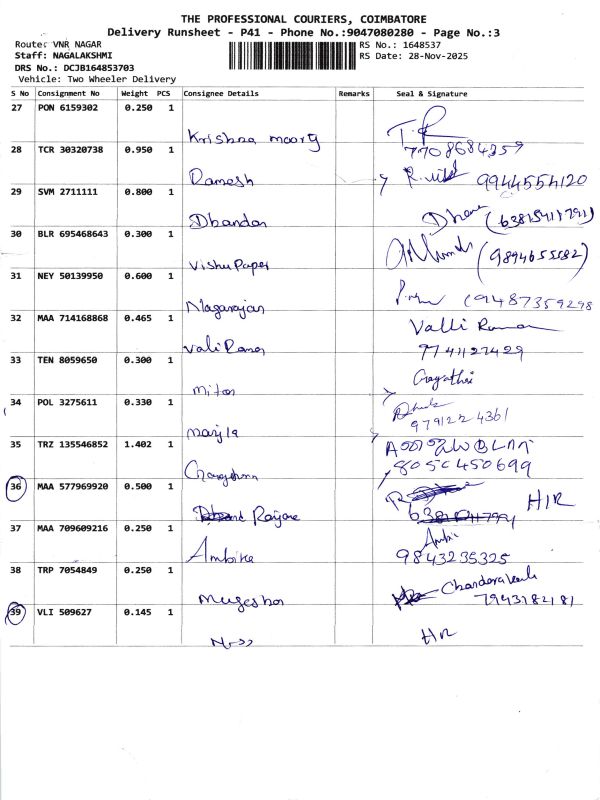 THE PROFESSIONAL COURIERS, COIMBATORE
Delivery Runsheet - P41 - Phone No.:9047080280 - Page No.:3
Route: VNR NAGAR
RS No.: 1648537
Staff: NAGALAKSHMI
RS Date: 28-Nov-2025
DRS No.: DCJB164853703
Vehicle: Two Wheeler Delivery
S No Consignment No Weight PCS Consignee Details Remarks Seal & Signature
27 PON 6159302 0.250 1
Krishna moorty
28 TCR 30320738 0.950 1 7708684259
Ramesh 9944554120
29 SVM 2711111 0.800 1
Dhandar Dhana (6381541791)
30 BLR 695468643 0.300 1
Vishu Paper (9894655582)
31 NEY 50139950 0.600 1
Nagarajan (9487359298
32 MAA 714168868 0.465 1 Valli Raman
Vali Raman 9741127429
33 TEN 8059650 0.300 1 Gayathri
miton
34 POL 3275611 0.330 1
9791224361
35 TRZ 135546852 1.402 1
8050450699
36 MAA 577969920 0.500 1 HIR
37 MAA 709609216 0.250 1 Ambi
Ambika 9843235325
38 TRP 7054849 0.250 1
7943182181
39 VLI 509627 0.145 1 HR